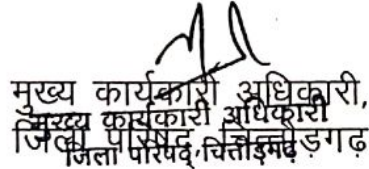 मुख्य कार्यकारी अधिकारी,
मुख्य कार्यकारी अधिकारी
जिला परिषद, चित्तौड़गढ़
जिला परिषद, चित्तौड़गढ़